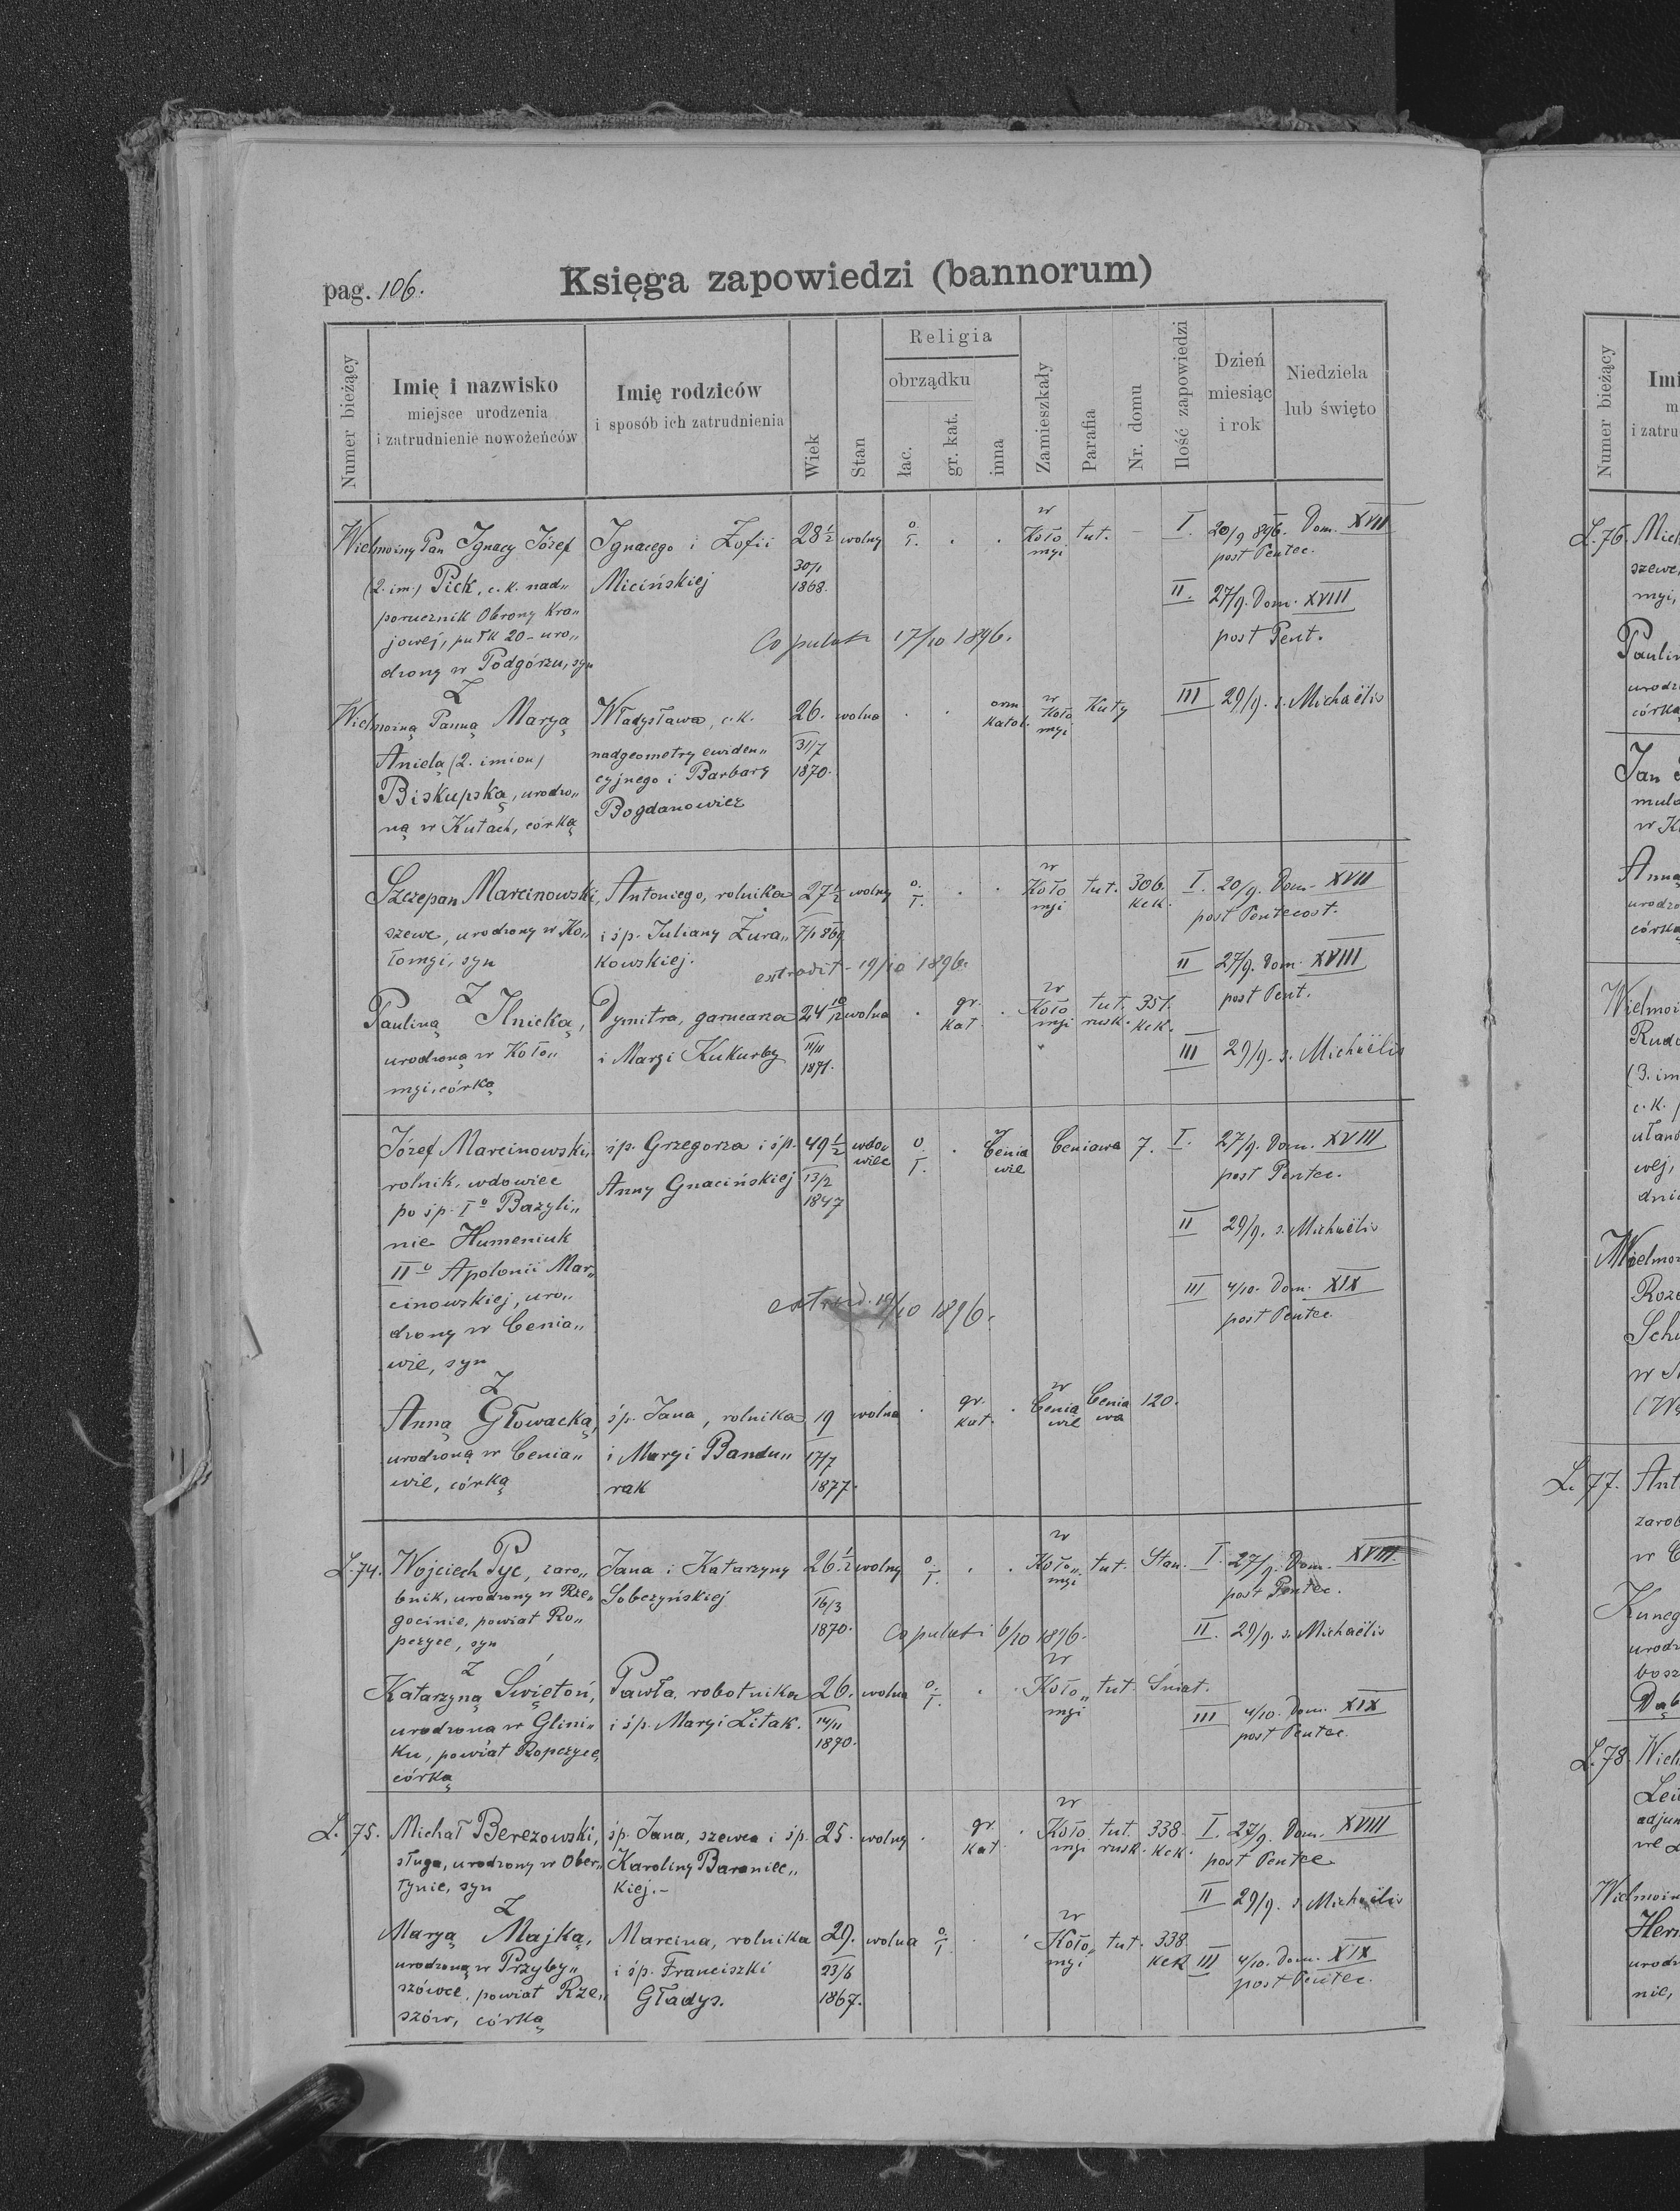 pag. 106.
Księga zapowiedzi (bannorum)
Numer bieżący
Imię i nazwisko
miejsce urodzenia
i zatrudnienie nowożeńców
Imię rodziców
i sposób ich zatrudnienia
Wiek
Stan
Religia
obrządku
łac.
gr. kat.
inna
Zamieszkały
Parafia
Nr. domu
Ilość zapowiedzi
Dzień
miesiąc
i rok
Niedziela
lub święto
Wielmożny Pan Ignacy Józef
(2. im.) Pick, c. k. nad„
porucznik Obrony Kra„
jowej, pułk 20 - uro„
dzony w Podgórzu, syn
Ignacego i Zofii
Micińskiej
28 1/2
30/1
1868.
wolny
o.
ł.
w
Koło
myi
tut.
I. 20/9 896. Dom. XVII
post Pentec.
II. 27/9. Dom. XVIII
post Pent.
III 29/9. s. Michaëlis
Copulati 17/10 1896.
Z
Wielmożną Panną Maryą
Anielą (2. imion)
Biskupską, urodzo„
ną w Kutach, córką
Władysława, c. k.
nadgeometry ewiden„
cyjnego i Barbary
Bogdanowicz
26.
31/7
1870.
wolna
orm
katol.
w
Koło
myi
Kuty
Szczepan Marcinowski,
szewc, urodzony w Ko„
łomyi, syn
Antoniego, rolnika
i śp. Juliany Żura„
kowskiej.
27 1/2
wolny
o.
ł.
w
Koło
myi
tut.
306.
kck.
I. 20/9. Dom. XVII
post Pentecost.
II 27/9. Dom. XVIII
post Pent.
III 29/9. s. Michaëlis
extradit - 19/10 1896.
Z
Pauliną Ilnicką,
urodzoną w Koło„
myi, córką
Dymitra, garncarza
i Maryi Kukurby
24 10/12
11/11
1871.
wolna
gr.
kat.
w
Koło
myi
tut.
rusk.
351.
kck.
Józef Marcinowski,
rolnik, wdowiec
po śp. Iº Bazyli„
nie Humeniuk
IIº Apolonii Mar„
cinowskiej, uro„
dzony w Cenia„
wie, syn
śp. Grzegorza i śp.
Anny Gnacińskiej
49 1/2
13/2
1847
wdo„
wiec
o
ł.
w
Cenia
wie
Ceniawa
7.
I. 27/9. Dom. XVIII
post Pentec.
II 29/9. s. Michaëlis
III 4/10. Dom. XIX
post Pentec.
extrad. 19/10 1896.
Z
Anną Głowacką,
urodzoną w Cenia„
wie, córką
śp. Jana, rolnika
i Maryi Bandu„
rak
19
17/7
1877.
wolna
gr.
kat.
w
Cenia
wie
Cenia
wa
120.
L. 74.
Wojciech Pyc, zaro„
bnik, urodzony w Rze„
gocinie, powiat Ro„
pczyce, syn
Jana i Katarzyny
Sobczyńskiej
26 1/2
16/3
1870.
wolny
o.
ł.
w
Koło„
myi
tut.
Stan.
I. 27/9. Dom. XVIII.
post Pentec.
II. 29/9. s. Michaëlis
III 4/10. Dom. XIX
post Pentec.
Copulati 6/10 1896.
Z
Katarzyną Świętoń,
urodzona w Glini„
ku, powiat Ropczyce,
córką
Pawła, robotnika
i śp. Maryi Litak.
26.
14/11
1870.
wolna
o.
ł.
w
Koło„
myi
tut.
Śniat.
L. 75.
Michał Berezowski,
sługa, urodzony w Ober„
tynie, syn
śp. Jana, szewca i śp.
Karoliny Baraniec„
kiej.-
25.
wolny
gr.
kat.
w
Koło
myi
tut.
rusk.
338.
kck.
I. 27/9. Dom. XVIII
post Pentec
II 29/9. s Michaëlis
III 4/10. Dom. XIX
post Pentec.
Z
Maryą Majką,
urodzoną w Przyby„
szówce, powiat Rze„
szów, córką
Marcina, rolnika
i śp. Franciszki
Gładys.
29.
23/6
1867.
wolna
o.
ł
w
Koło„
myi
tut.
338.
kck
Numer bieżący
Imi
m
i zatru
L. 76.
Mich
szewc,
myi,
Paulin
urodz
córką
Jan
w K
Anną
urodzo
córką
Wielmoż
Rudo
(3. im
c. k.
ułanó
wej,
dni
Wielmoż
Roz
Sch
L. 77.
Ant
zarob
w C
Kuneg
urodz
Dąb
L. 78.
Wiel
adjun
Wielmożn
Her
urodz
nie,